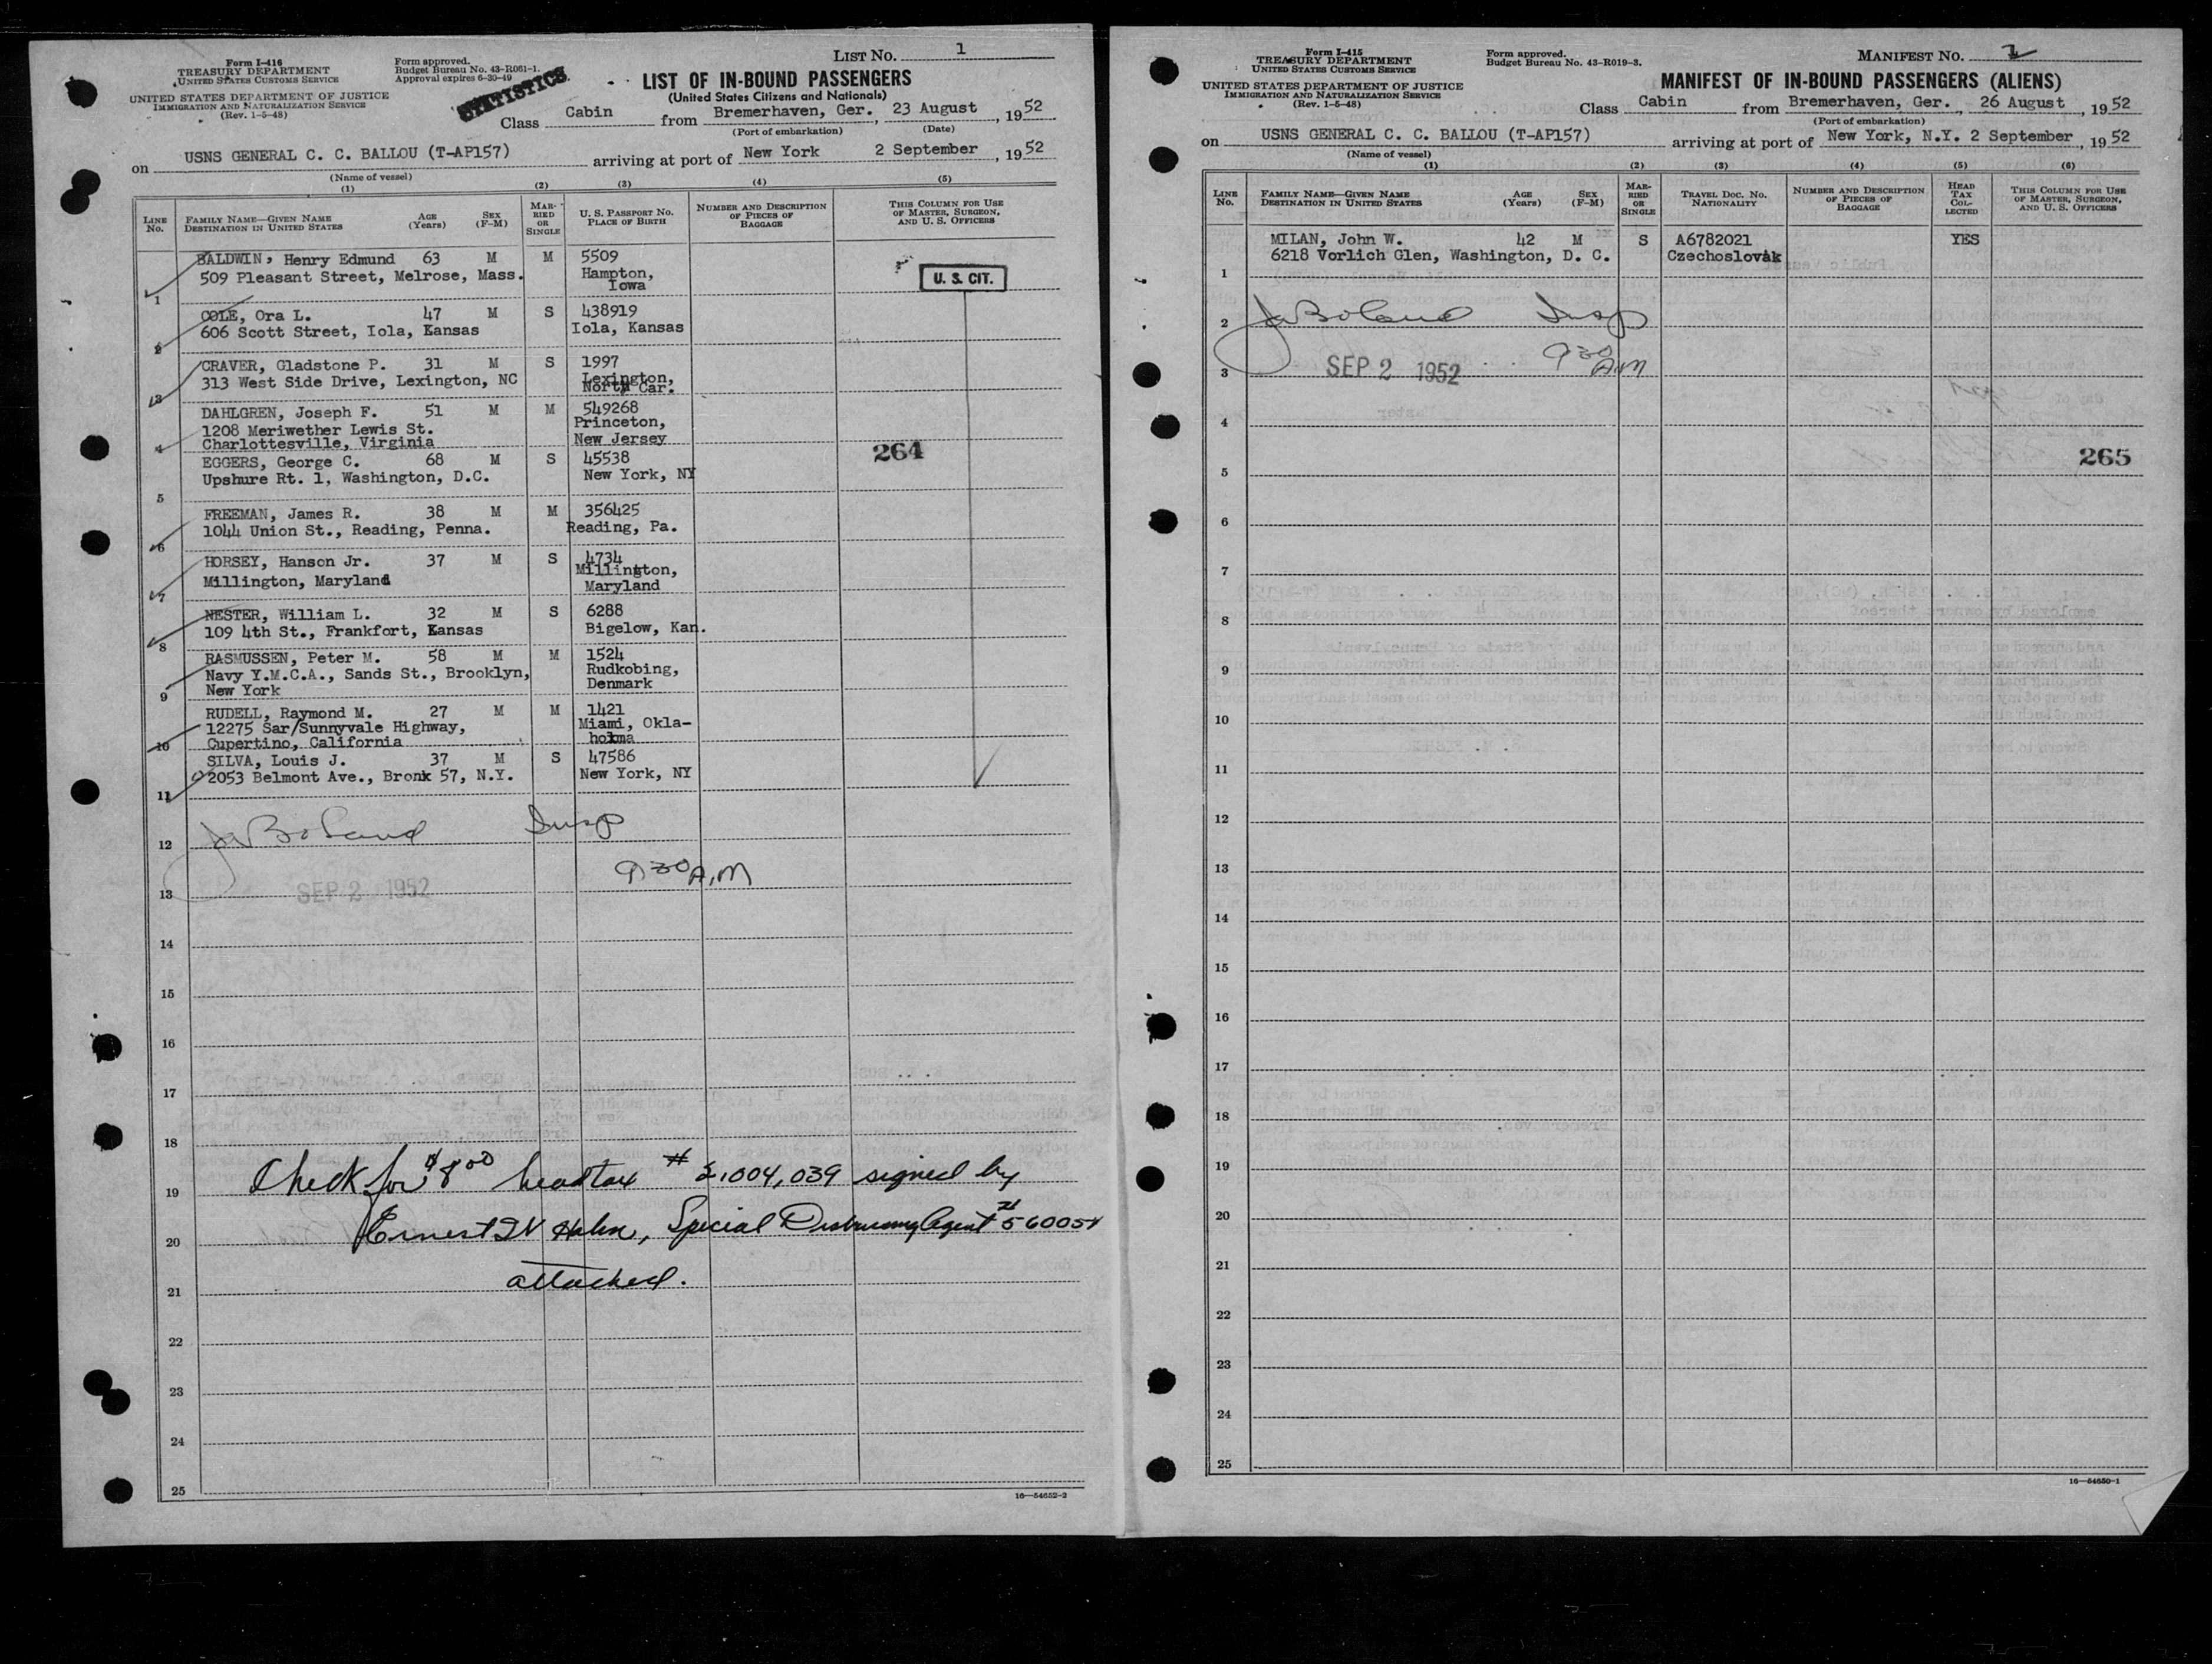 Form I-416
TREASURY DEPARTMENT
UNITED STATES CUSTOMS SERVICE
UNITED STATES DEPARTMENT OF JUSTICE
IMMIGRATION AND NATURALIZATION SERVICE
(Rev. 1-5-48)
Form approved.
Budget Bureau No. 43-R061-1.
Approval expires 6-30-49
STATISTICS
LIST NO. 1
LIST OF IN-BOUND PASSENGERS
(United States Citizens and Nationals)
Class Cabin from Bremerhaven, Ger., 23 August, 1952
(Port of embarkation) (Date)
on USNS GENERAL C. C. BALLOU (T-AP157) arriving at port of New York 2 September, 1952
(Name of vessel)
(1) (2) (3) (4) (5)
LINE No. FAMILY NAME—GIVEN NAME DESTINATION IN UNITED STATES AGE (Years) SEX (F-M) MARRIED OR SINGLE U. S. PASSPORT NO. PLACE OF BIRTH NUMBER AND DESCRIPTION OF PIECES OF BAGGAGE THIS COLUMN FOR USE OF MASTER, SURGEON, AND U. S. OFFICERS
BALDWIN, Henry Edmund 63 M M 5509
509 Pleasant Street, Melrose, Mass. Hampton,
Iowa
U. S. CIT.
1
COLE, Ora L. 47 M S 438919
606 Scott Street, Iola, Kansas Iola, Kansas
2
CRAVER, Gladstone P. 31 M S 1997
313 West Side Drive, Lexington, NC Lexington,
North Car.
3
DAHLGREN, Joseph F. 51 M M 549268
1208 Meriwether Lewis St. Princeton,
4 Charlottesville, Virginia New Jersey
264
EGGERS, George C. 68 M S 45538
Upshure Rt. 1, Washington, D.C. New York, NY
5
FREEMAN, James R. 38 M M 356425
1044 Union St., Reading, Penna. Reading, Pa.
6
HORSEY, Hanson Jr. 37 M S 4734
Millington, Maryland Millington,
Maryland
7
NESTER, William L. 32 M S 6288
109 4th St., Frankfort, Kansas Bigelow, Kan.
8
RASMUSSEN, Peter M. 58 M M 1524
Navy Y.M.C.A., Sands St., Brooklyn, Rudkobing,
9 New York Denmark
RUDELL, Raymond M. 27 M M 1421
12275 Sar/Sunnyvale Highway, Miami, Okla-
10 Cupertino, California homa
SILVA, Louis J. 37 M S 47586
2053 Belmont Ave., Bronx 57, N.Y. New York, NY
11
JW Boland Insp
12
9 30 A.M
SEP 2 1952
13
14
15
16
17
18
Check for $8 00 headtax # 2,004,039 signed by
19
Ernest W Hahn, Special Disbursing Agent
20
attached.
21
22
23
24
25
16—54652-2
Form I-415
TREASURY DEPARTMENT
UNITED STATES CUSTOMS SERVICE
UNITED STATES DEPARTMENT OF JUSTICE
IMMIGRATION AND NATURALIZATION SERVICE
(Rev. 1-5-48)
Form approved.
Budget Bureau No. 43-R019-3.
MANIFEST NO.
MANIFEST OF IN-BOUND PASSENGERS (ALIENS)
Class Cabin from Bremerhaven, Ger., 26 August, 1952
(Port of embarkation)
on USNS GENERAL C. C. BALLOU (T-AP157) arriving at port of New York, N.Y. 2 September, 1952
(Name of vessel)
(1) (2) (3) (4) (5) (6)
LINE No. FAMILY NAME—GIVEN NAME DESTINATION IN UNITED STATES AGE (Years) SEX (F-M) MARRIED OR SINGLE TRAVEL DOC. NO. NATIONALITY NUMBER AND DESCRIPTION OF PIECES OF BAGGAGE HEAD TAX COLLECTED THIS COLUMN FOR USE OF MASTER, SURGEON, AND U. S. OFFICERS
MILAN, John W. 42 M S A6782021 YES
6218 Vorlich Glen, Washington, D. C. Czechoslovak
1
JW Boland Insp
2
9 30 A.M
SEP 2 1952
3
4
265
5
6
7
8
9
10
11
12
13
14
15
16
17
18
19
20
21
22
23
24
25
16—54650-1